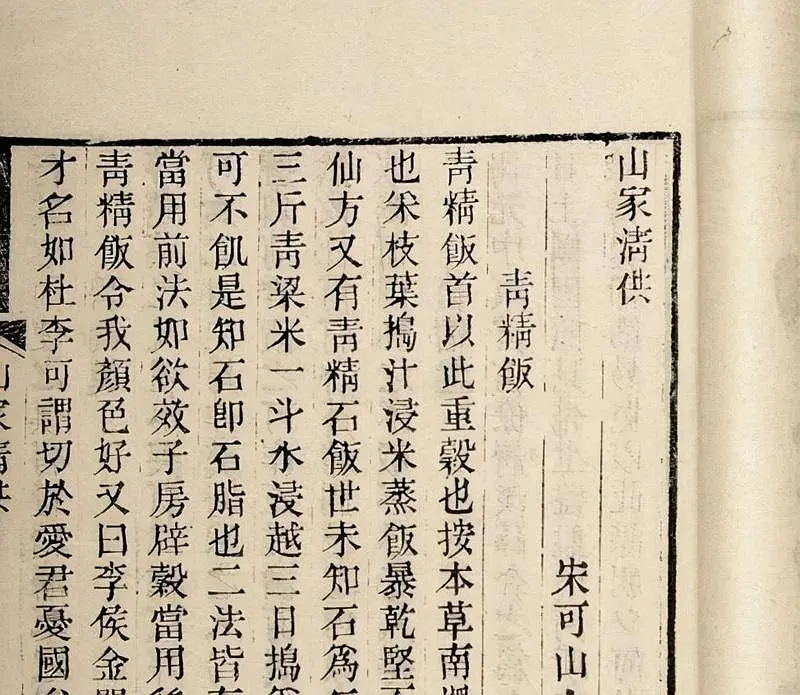 山家清供
宋可山
青精飯
青精飯首以此重穀也按本草南
也采枝葉搗汁浸米蒸飯暴乾堅
仙方又有青精石飯世未知石為
三斤青粱米一斗水浸越三日搗
可不飢是知石即石脂也二法皆
當用前法如欲效子房辟穀當用
青精飯令我顏色好又曰李侯金
才名如杜李可謂切於愛君憂國
山家清供